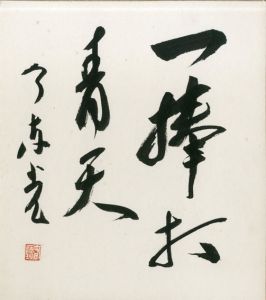 一棒打
青天
今東光